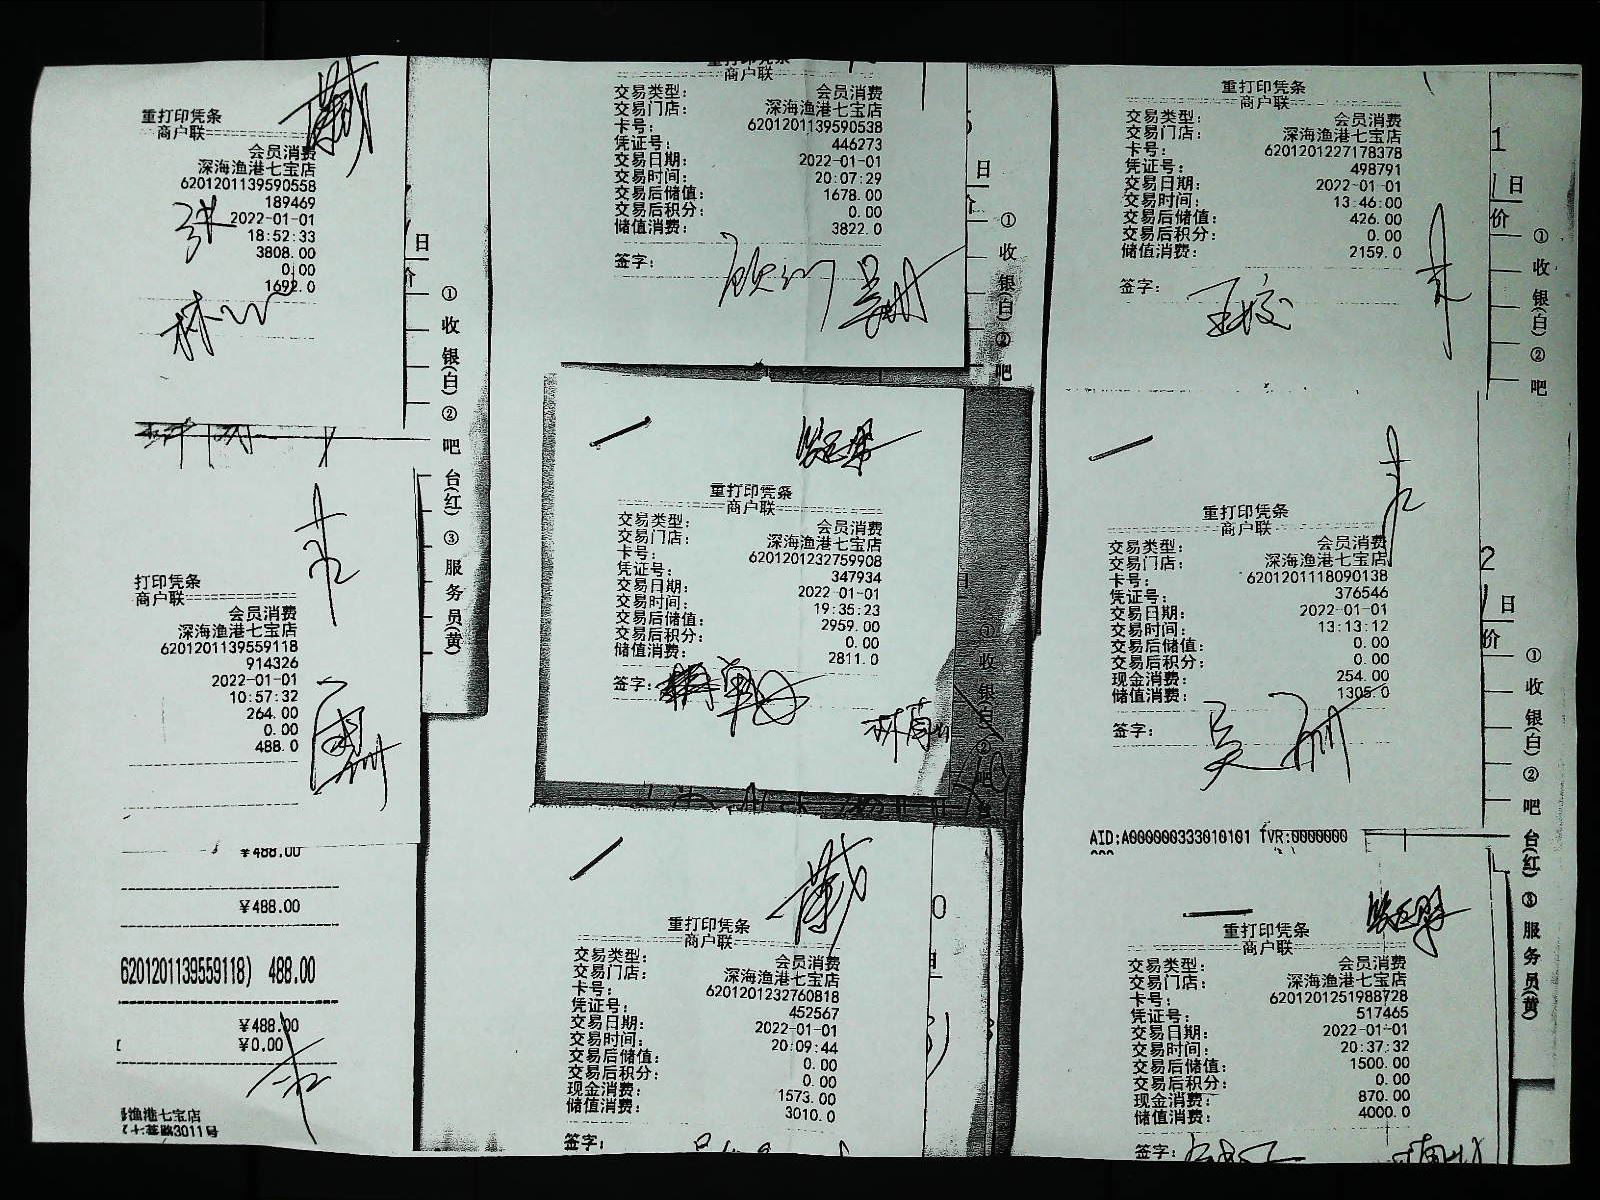 重打印凭条
商户联
会员消费
深海渔港七宝店
6201201139590558
189469
2022-01-01
18:52:33
3808.00
0.00
1692.0
日
价
①收银(白)②吧台(红)③服务员(黄)
打印凭条
商户联
会员消费
深海渔港七宝店
6201201139559118
914326
2022-01-01
10:57:32
264.00
0.00
488.0
¥488.00
¥488.00
6201201139559118) 488.00
¥488.00
¥0.00
渔港七宝店
3011号
重打印凭条
商户联
交易类型: 会员消费
交易门店: 深海渔港七宝店
卡号: 6201201139590538
凭证号: 446273
交易日期: 2022-01-01
交易时间: 20:07:29
交易后储值: 1678.00
交易后积分: 0.00
储值消费: 3822.0
签字:
日
价
①收银(白)②吧
重打印凭条
商户联
交易类型: 会员消费
交易门店: 深海渔港七宝店
卡号: 6201201232759908
凭证号: 347934
交易日期: 2022-01-01
交易时间: 19:35:23
交易后储值: 2959.00
交易后积分: 0.00
储值消费: 2811.0
签字:
①收银(白)②吧台
重打印凭条
商户联
交易类型: 会员消费
交易门店: 深海渔港七宝店
卡号: 6201201232760818
凭证号: 452567
交易日期: 2022-01-01
交易时间: 20:09:44
交易后储值: 0.00
交易后积分: 0.00
现金消费: 1573.00
储值消费: 3010.0
签字:
重打印凭条
商户联
交易类型: 会员消费
交易门店: 深海渔港七宝店
卡号: 6201201227178378
凭证号: 498791
交易日期: 2022-01-01
交易时间: 13:46:00
交易后储值: 426.00
交易后积分: 0.00
储值消费: 2159.0
签字:
1
日
价
①收银(白)②吧
重打印凭条
商户联
交易类型: 会员消费
交易门店: 深海渔港七宝店
卡号: 6201201118090138
凭证号: 376546
交易日期: 2022-01-01
交易时间: 13:13:12
交易后储值: 0.00
交易后积分: 0.00
现金消费: 254.00
储值消费: 1305.0
签字:
2
日
价
①收银(白)②吧台(红)③服务员(黄)
AID:A000000333010101 TVR:0000000
000
重打印凭条
商户联
交易类型: 会员消费
交易门店: 深海渔港七宝店
卡号: 6201201251988728
凭证号: 517465
交易日期: 2022-01-01
交易时间: 20:37:32
交易后储值: 1500.00
交易后积分: 0.00
现金消费: 870.00
储值消费: 4000.0
签字: